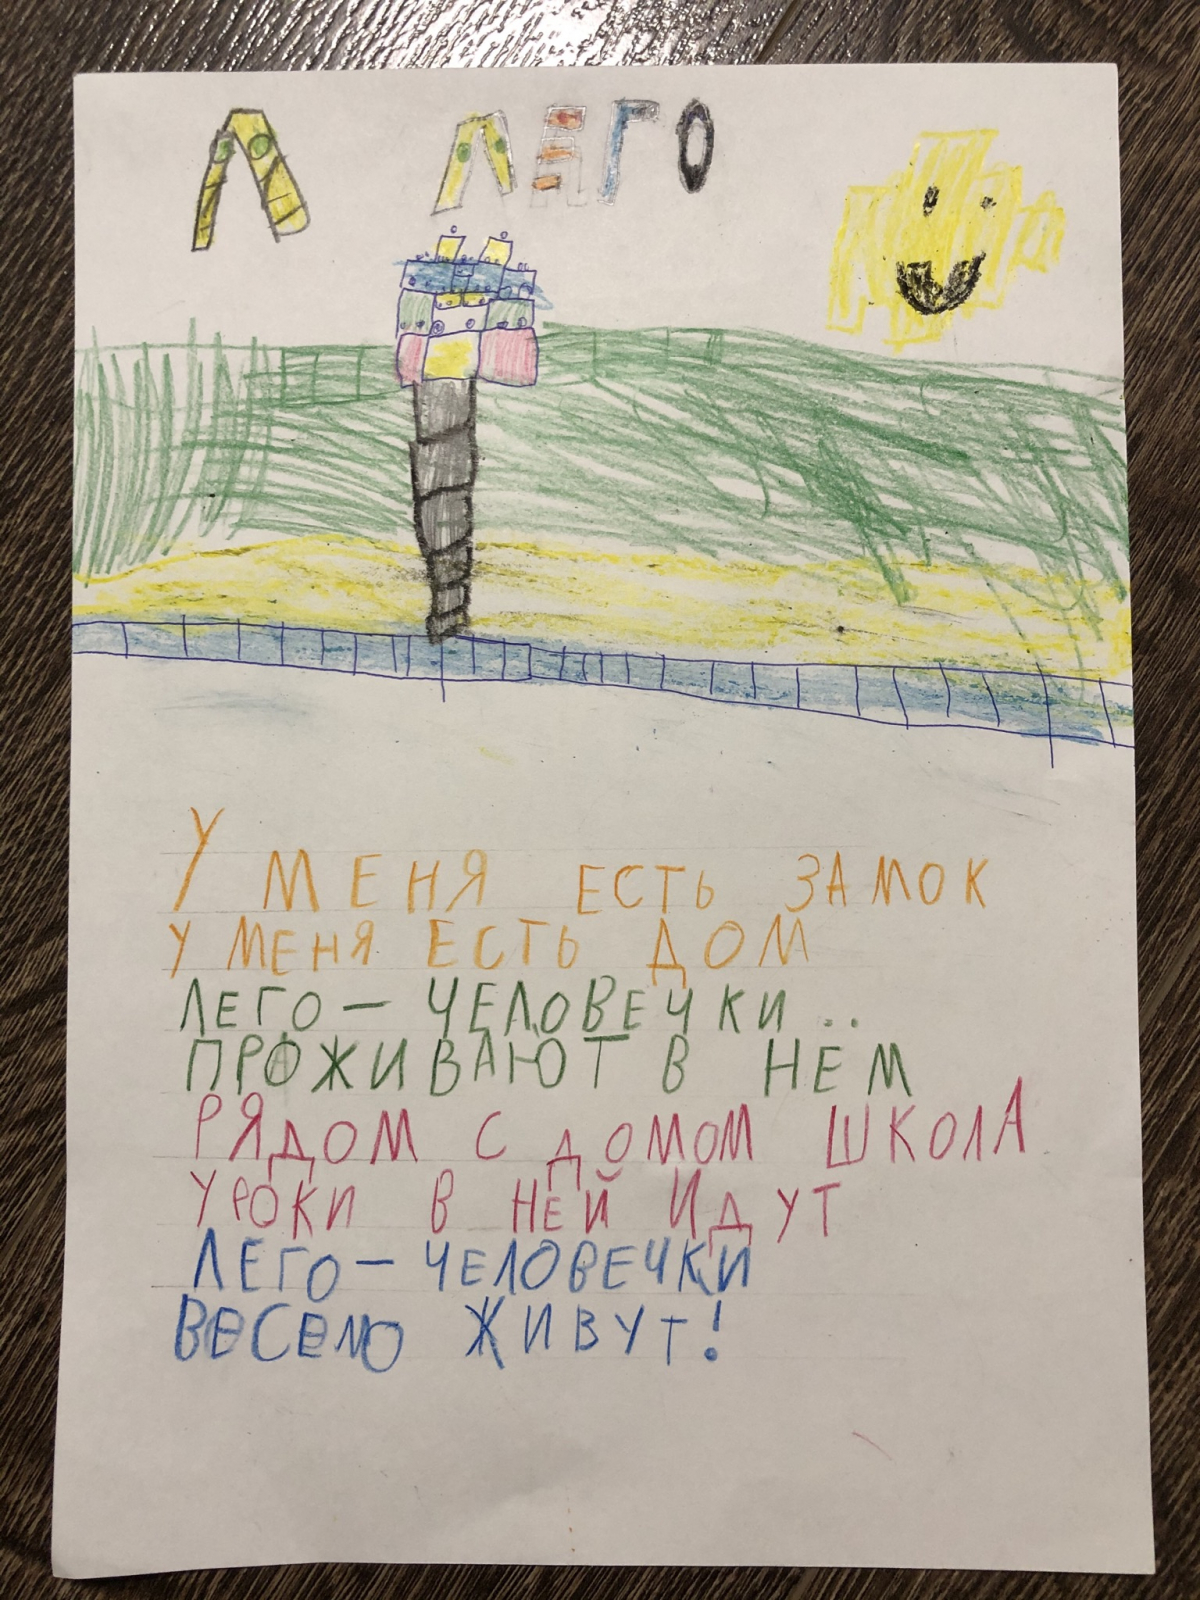 Л ЛЕГО
У МЕНЯ ЕСТЬ ЗАМОК
У МЕНЯ ЕСТЬ ДОМ
ЛЕГО - ЧЕЛОВЕЧКИ
ПРОЖИВАЮТ В НЁМ
РЯДОМ С ДОМОМ ШКОЛА
УРОКИ В НЕЙ ИДУТ
ЛЕГО - ЧЕЛОВЕЧКИ
ВЕСЕЛО ЖИВУТ!